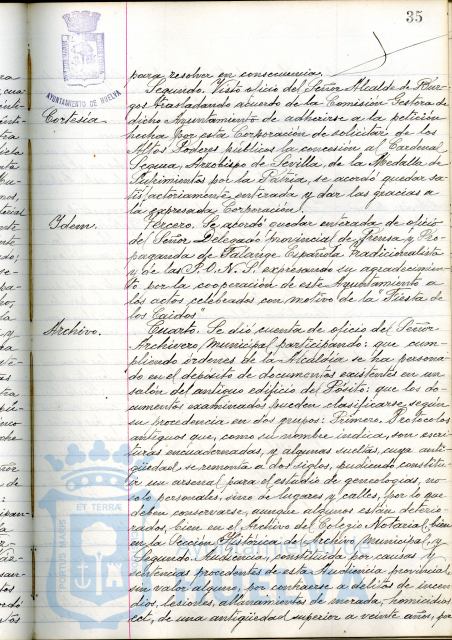 35
AYUNTAMIENTO DE HUELVA
para resolver en consecuencia.
Segundo. Visto oficio del Señor Alcalde de Bur-
gos trasladando acuerdo de la Comisión Gestora de
Cortesía dicho Ayuntamiento de adherirse a la petición
hecha por esta Corporación de solicitar de los
Altos Poderes públicos la concesión al Cardenal
Segura, Arzobispo de Sevilla, de la Medalla de
Sufrimientos por la Patria, se acordó quedar sa-
tisfactoriamente enterada y dar las gracias a
la expresada Corporación.
Idem. Tercero. Se acordó quedar enterada de oficio
del Señor Delegado provincial de Prensa y Pro-
paganda de Falange Española Tradicionalista
y de las J.O.N.S. expresando su agradecimien-
to por la cooperación de este Ayuntamiento a
los actos celebrados con motivo de la "Fiesta de
los Caidos"
Archivo. Cuarto. Se dió cuenta de oficio del Señor
Archivero municipal participando: que cum-
pliendo órdenes de la Alcaldía se ha persona-
do en el depósito de documentos existentes en un
salón del antiguo edificio del Pósito: que los do-
cumentos examinados pueden clasificarse según
su procedencia en dos grupos: Primero, Protocolos
antiguos que, como su nombre indica, son escri-
turas encuadernadas, y algunas sueltas, cuya anti-
güedad se remonta a dos siglos, pudiendo constitu-
ir un arsenal para el estudio de genealogías, no
solo personales, sino de lugares y calles, por lo que
deben conservarse, aunque algunos están deterio-
rados, bien en el Archivo del Colegio Notarial, bien
en la Sección Histórica del Archivo municipal, y
Segundo Audiencia, constituida por causas y
sentencias procedentes de esta Audiencia provincial
sin valor alguno, por contraerse a delitos de incen-
dios, lesiones, allanamientos de morada, homicidios
ect, de una antigüedad superior a veinte años, po
PORTUS MARIS ET TERRÆ